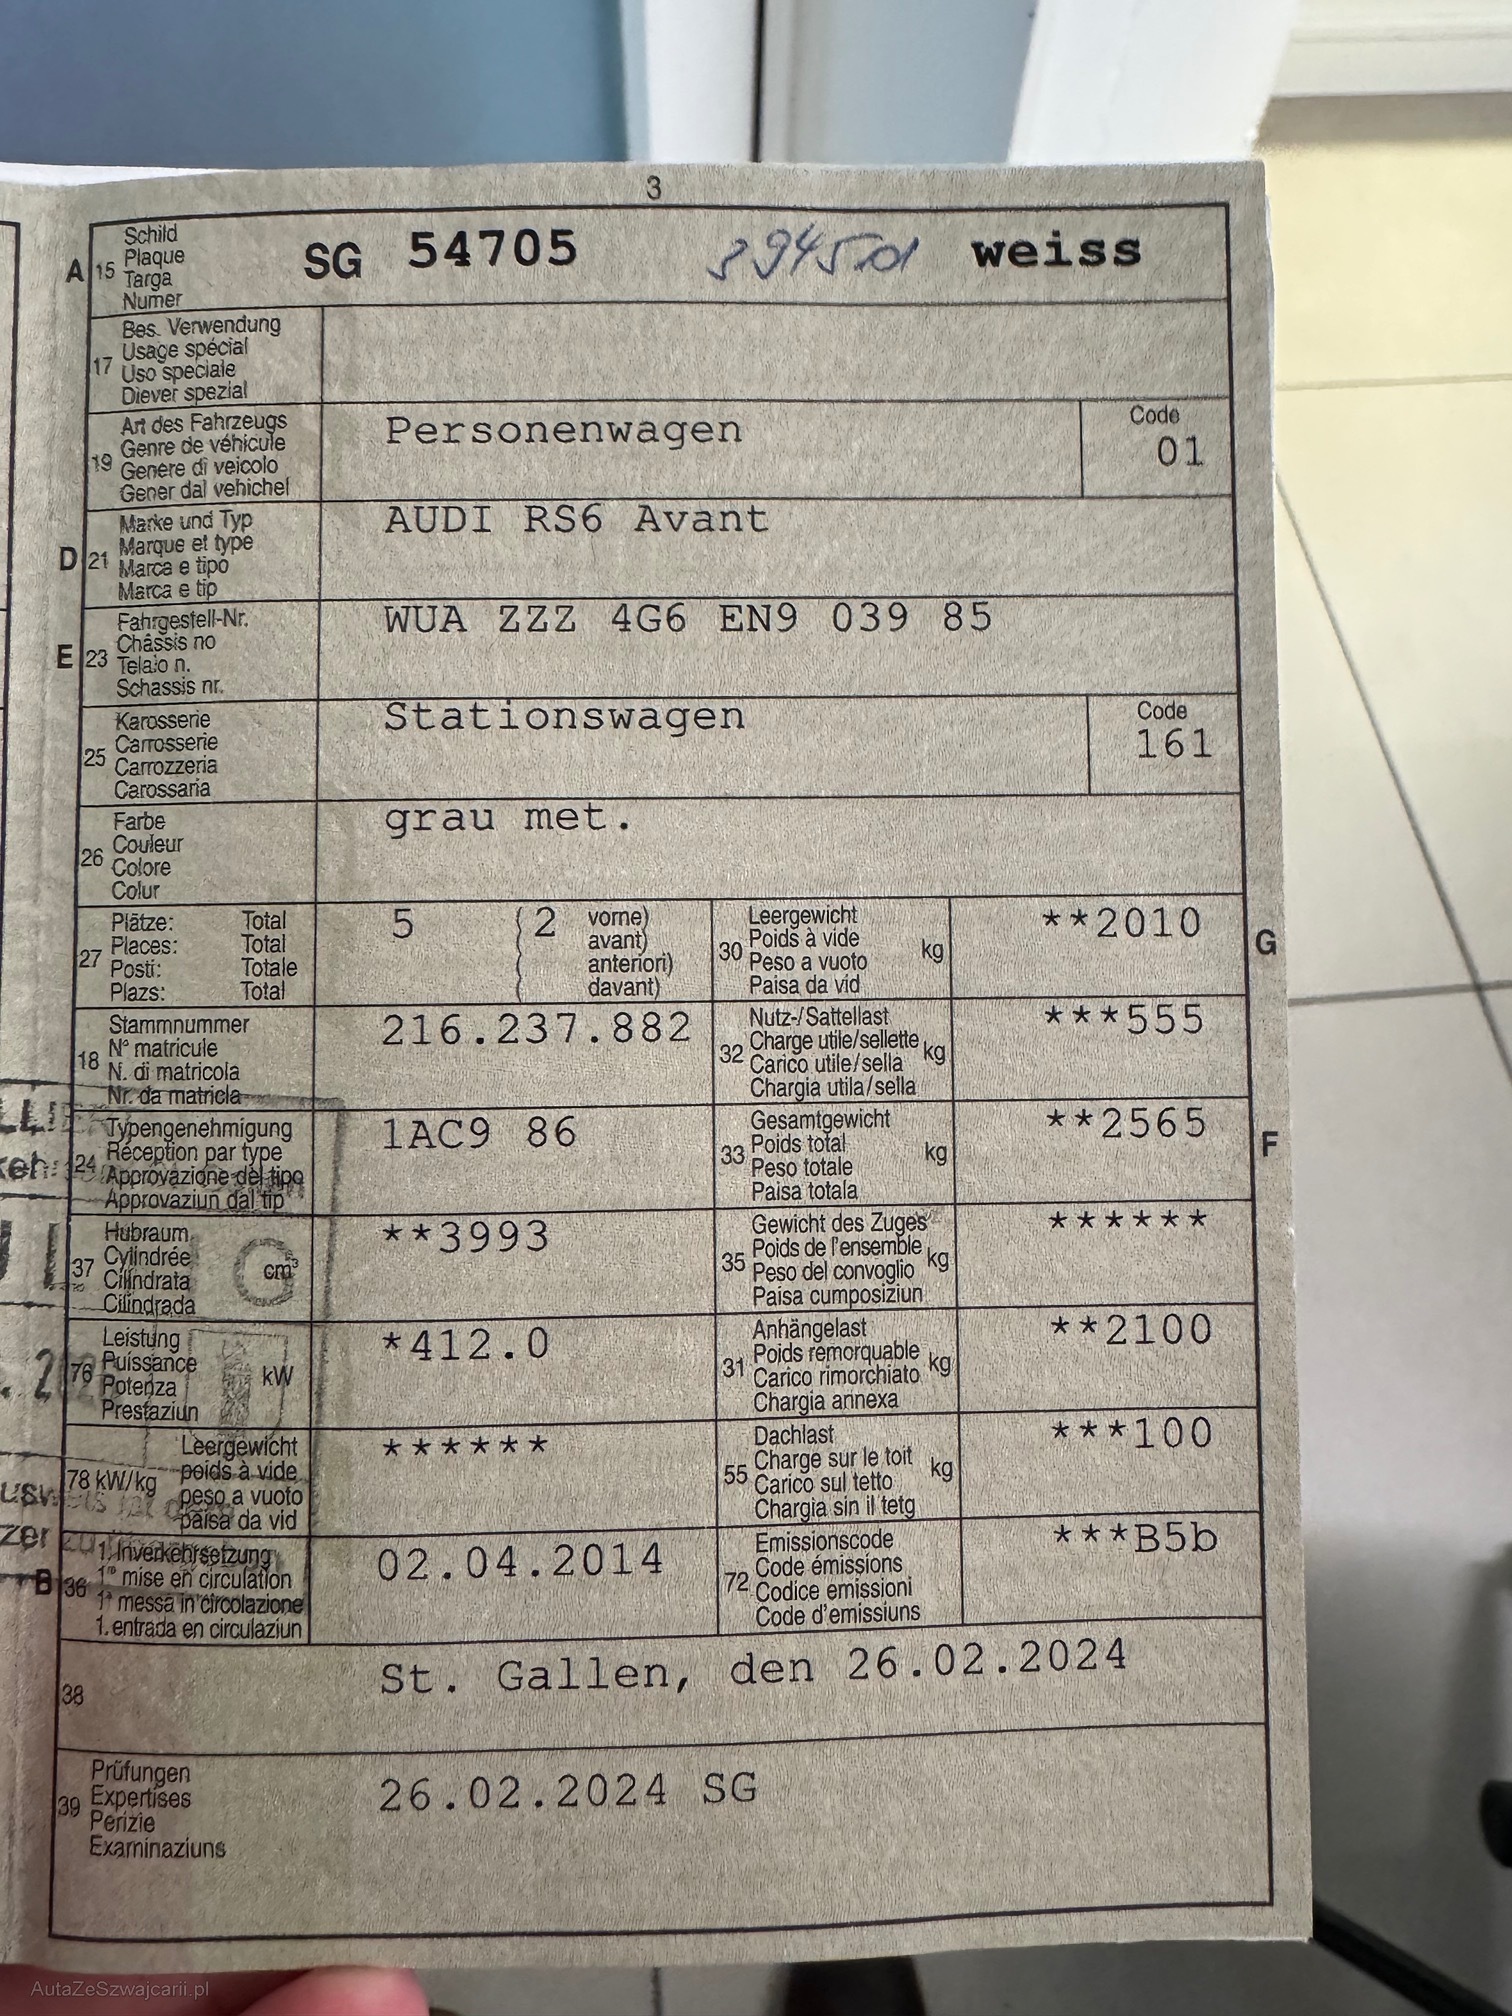 3
A 15 Schild SG 54705 weiss
Plaque
Targa
Numer
17 Bes. Verwendung
Usage spécial
Uso speciale
Diever spezial
19 Art des Fahrzeugs Personenwagen Code
Genre de véhicule 01
Genere di veicolo
Gener dal vehichel
D 21 Marke und Typ AUDI RS6 Avant
Marque et type
Marca e tipo
Marca e tip
E 23 Fahrgestell-Nr. WUA ZZZ 4G6 EN9 039 85
Châssis no
Telaio n.
Schassis nr.
25 Karosserie Stationswagen Code
Carrosserie 161
Carrozzeria
Carossaria
26 Farbe grau met.
Couleur
Colore
Colur
27 Plätze: Total 5 (2 vorne)
Places: Total ( avant)
Posti: Totale ( anteriori)
Plazs: Total ( davant)
30 Leergewicht **2010 G
Poids à vide kg
Peso a vuoto
Paisa da vid
18 Stammnummer 216.237.882
N° matricule
N. di matricola
Nr. da matricla
32 Nutz-/Sattellast ***555
Charge utile/sellette kg
Carico utile/sella
Chargia utila/sella
24 Typengenehmigung 1AC9 86
Réception par type
Approvazione del tipo
Approvaziun dal tip
33 Gesamtgewicht **2565 F
Poids total kg
Peso totale
Paisa totala
37 Hubraum **3993
Cylindrée cm³
Cilindrata
Cilindrada
35 Gewicht des Zuges ******
Poids de l'ensemble kg
Peso del convoglio
Paisa cumposiziun
76 Leistung *412.0
Puissance kW
Potenza
Prestaziun
31 Anhängelast **2100
Poids remorquable kg
Carico rimorchiato
Chargia annexa
78 kW/kg Leergewicht ******
poids à vide
peso a vuoto
paisa da vid
55 Dachlast ***100
Charge sur le toit kg
Carico sul tetto
Chargia sin il tetg
B 36 1. Inverkehrsetzung 02.04.2014
1re mise en circulation
1a messa in circolazione
1. entrada en circulaziun
72 Emissionscode ***B5b
Code émissions
Codice emissioni
Code d'emissiuns
38 St. Gallen, den 26.02.2024
39 Prüfungen 26.02.2024 SG
Expertises
Perizie
Examinaziuns
AutaZeSzwajcarii.pl